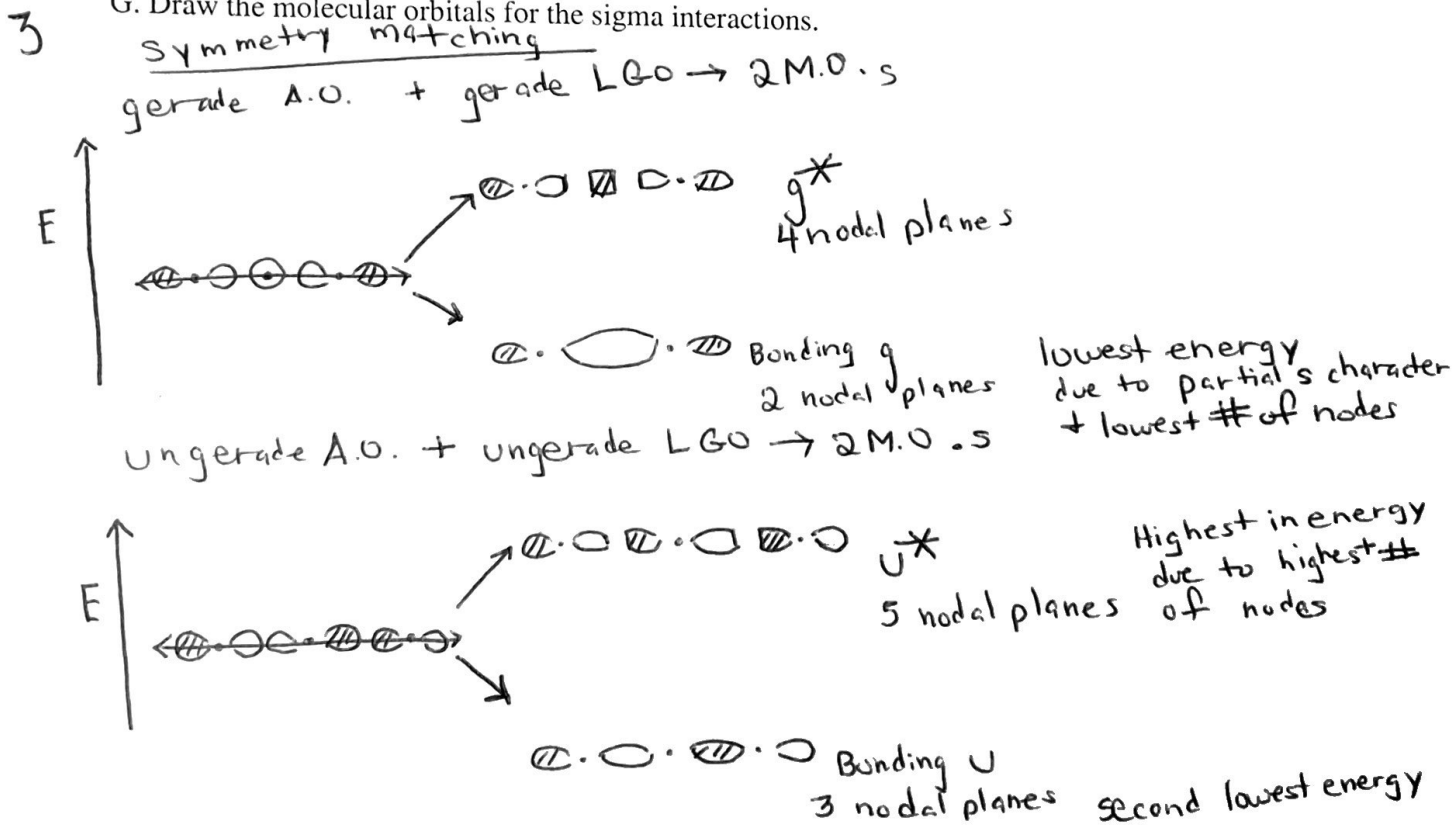 3
G. Draw the molecular orbitals for the sigma interactions.
symmetry matching
gerade A.O. + gerade LGO → 2 M.O.s
E
g*
4 nodal planes
Bonding g
2 nodal planes
lowest energy
due to partial s character
+ lowest # of nodes
ungerade A.O. + ungerade LGO → 2 M.O.s
E
u*
5 nodal planes
Highest in energy
due to highest #
of nodes
Bonding u
3 nodal planes
second lowest energy